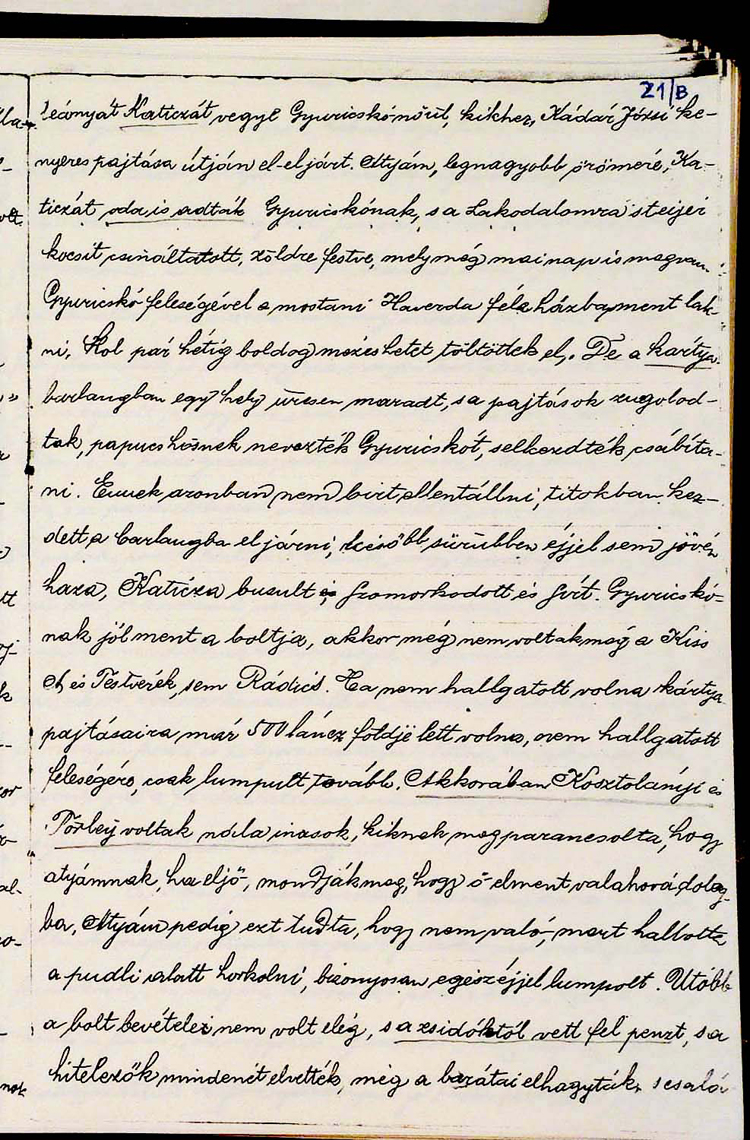 21/B
leányát Katiczát vegye Gyuricskó nőül, kikhez, Kádár Józsi ke-
nyeres pajtása útján el-eljárt. Atyám, legnagyobb örömére, Ka-
ticzát oda is adták Gyuricskónak, s a Lakodalomra steijer
kocsit csináltatott, zöldre festve, mely még mai nap is megvan.
Gyuricskó feleségével a mostani Haverda féle házba ment lak-
ni, Hol pár hétig boldog mézes hetet töltöttek el. De a kártya
barlangban egy hely üresen maradt, s a pajtások zugolod-
tak, papucs hősnek nevezték Gyuricskót, s elkezdték csábíta-
ni. Ennek azonban nem birt ellentállni, titokban kez-
dett a barlangba eljárni, később sürübben éjjel sem jövén
haza, Katicza busult és szomorkodott és sírt. Gyuricskó-
nak jól ment a boltja, akkor még nem voltak még a Kiss
A és Testverék, sem Rádics. Ha nem hallgatott volna kártya
pajtásaira már 500 láncz földje lett volna, nem hallgatott
feleségére, csak lumpult tovább. Akkorában Kosztolányi és
Törley voltak nála inasok, kiknek megparancsolta, hogy
atyámnak, ha eljő, mondják meg, hogy ő elment valahová dolog-
ba, Atyám pedig ezt tudta, hogy nem való, mert hallotta
a pudli alatt horkolni, bizonyosan egész éjjel lumpolt. Utóbb
a bolt bevételei nem volt elég, s a zsidóktól vett fel penzt, s a
hitelezők mindenét elvették, még a barátai elhagyták, s csalá